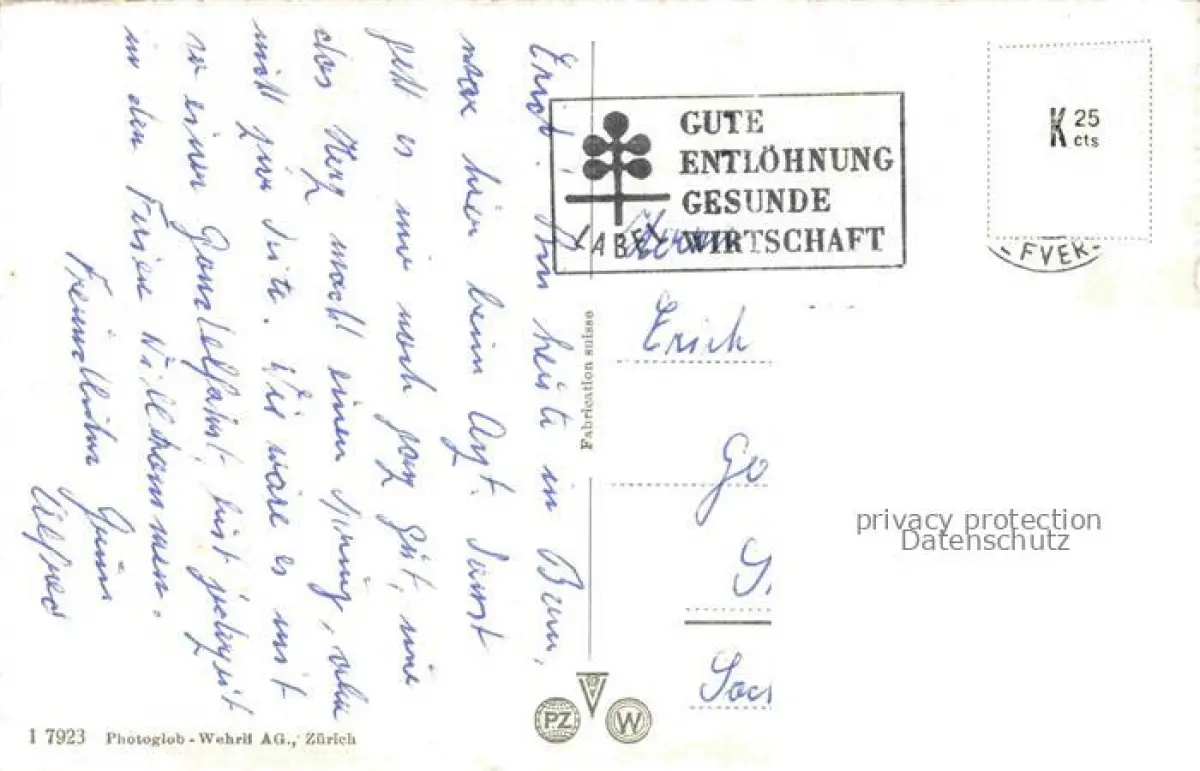 Erich! Bin heute in Bern,
war hier beim Arzt. Sonst
geht es mir noch ganz gut, nur
das Herz macht einen Sprung, oder
nicht zur Seite. Wie wäre es mit
so einer Gondelfahrt, bist jederzeit
in den Ferien Willkommen.
Freundlichen Gruss
Alfred
GUTE
ENTLÖHNUNG
GESUNDE
WIRTSCHAFT
LABEL
K 25
cts
Herrn
Erich
Go
S
Soc
Fabrication suisse
privacy protection
Datenschutz
PZ
W
I 7923 Photoglob-Wehrli AG., Zürich